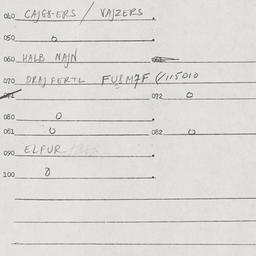 040 CAJGERS / VAJZERS
050 0
060 HALB NAJN
070 DRAJFERTL FUSM7F 4/115010
071 072 0
080 0
081 0 082 0
090 ELFUR
100 0